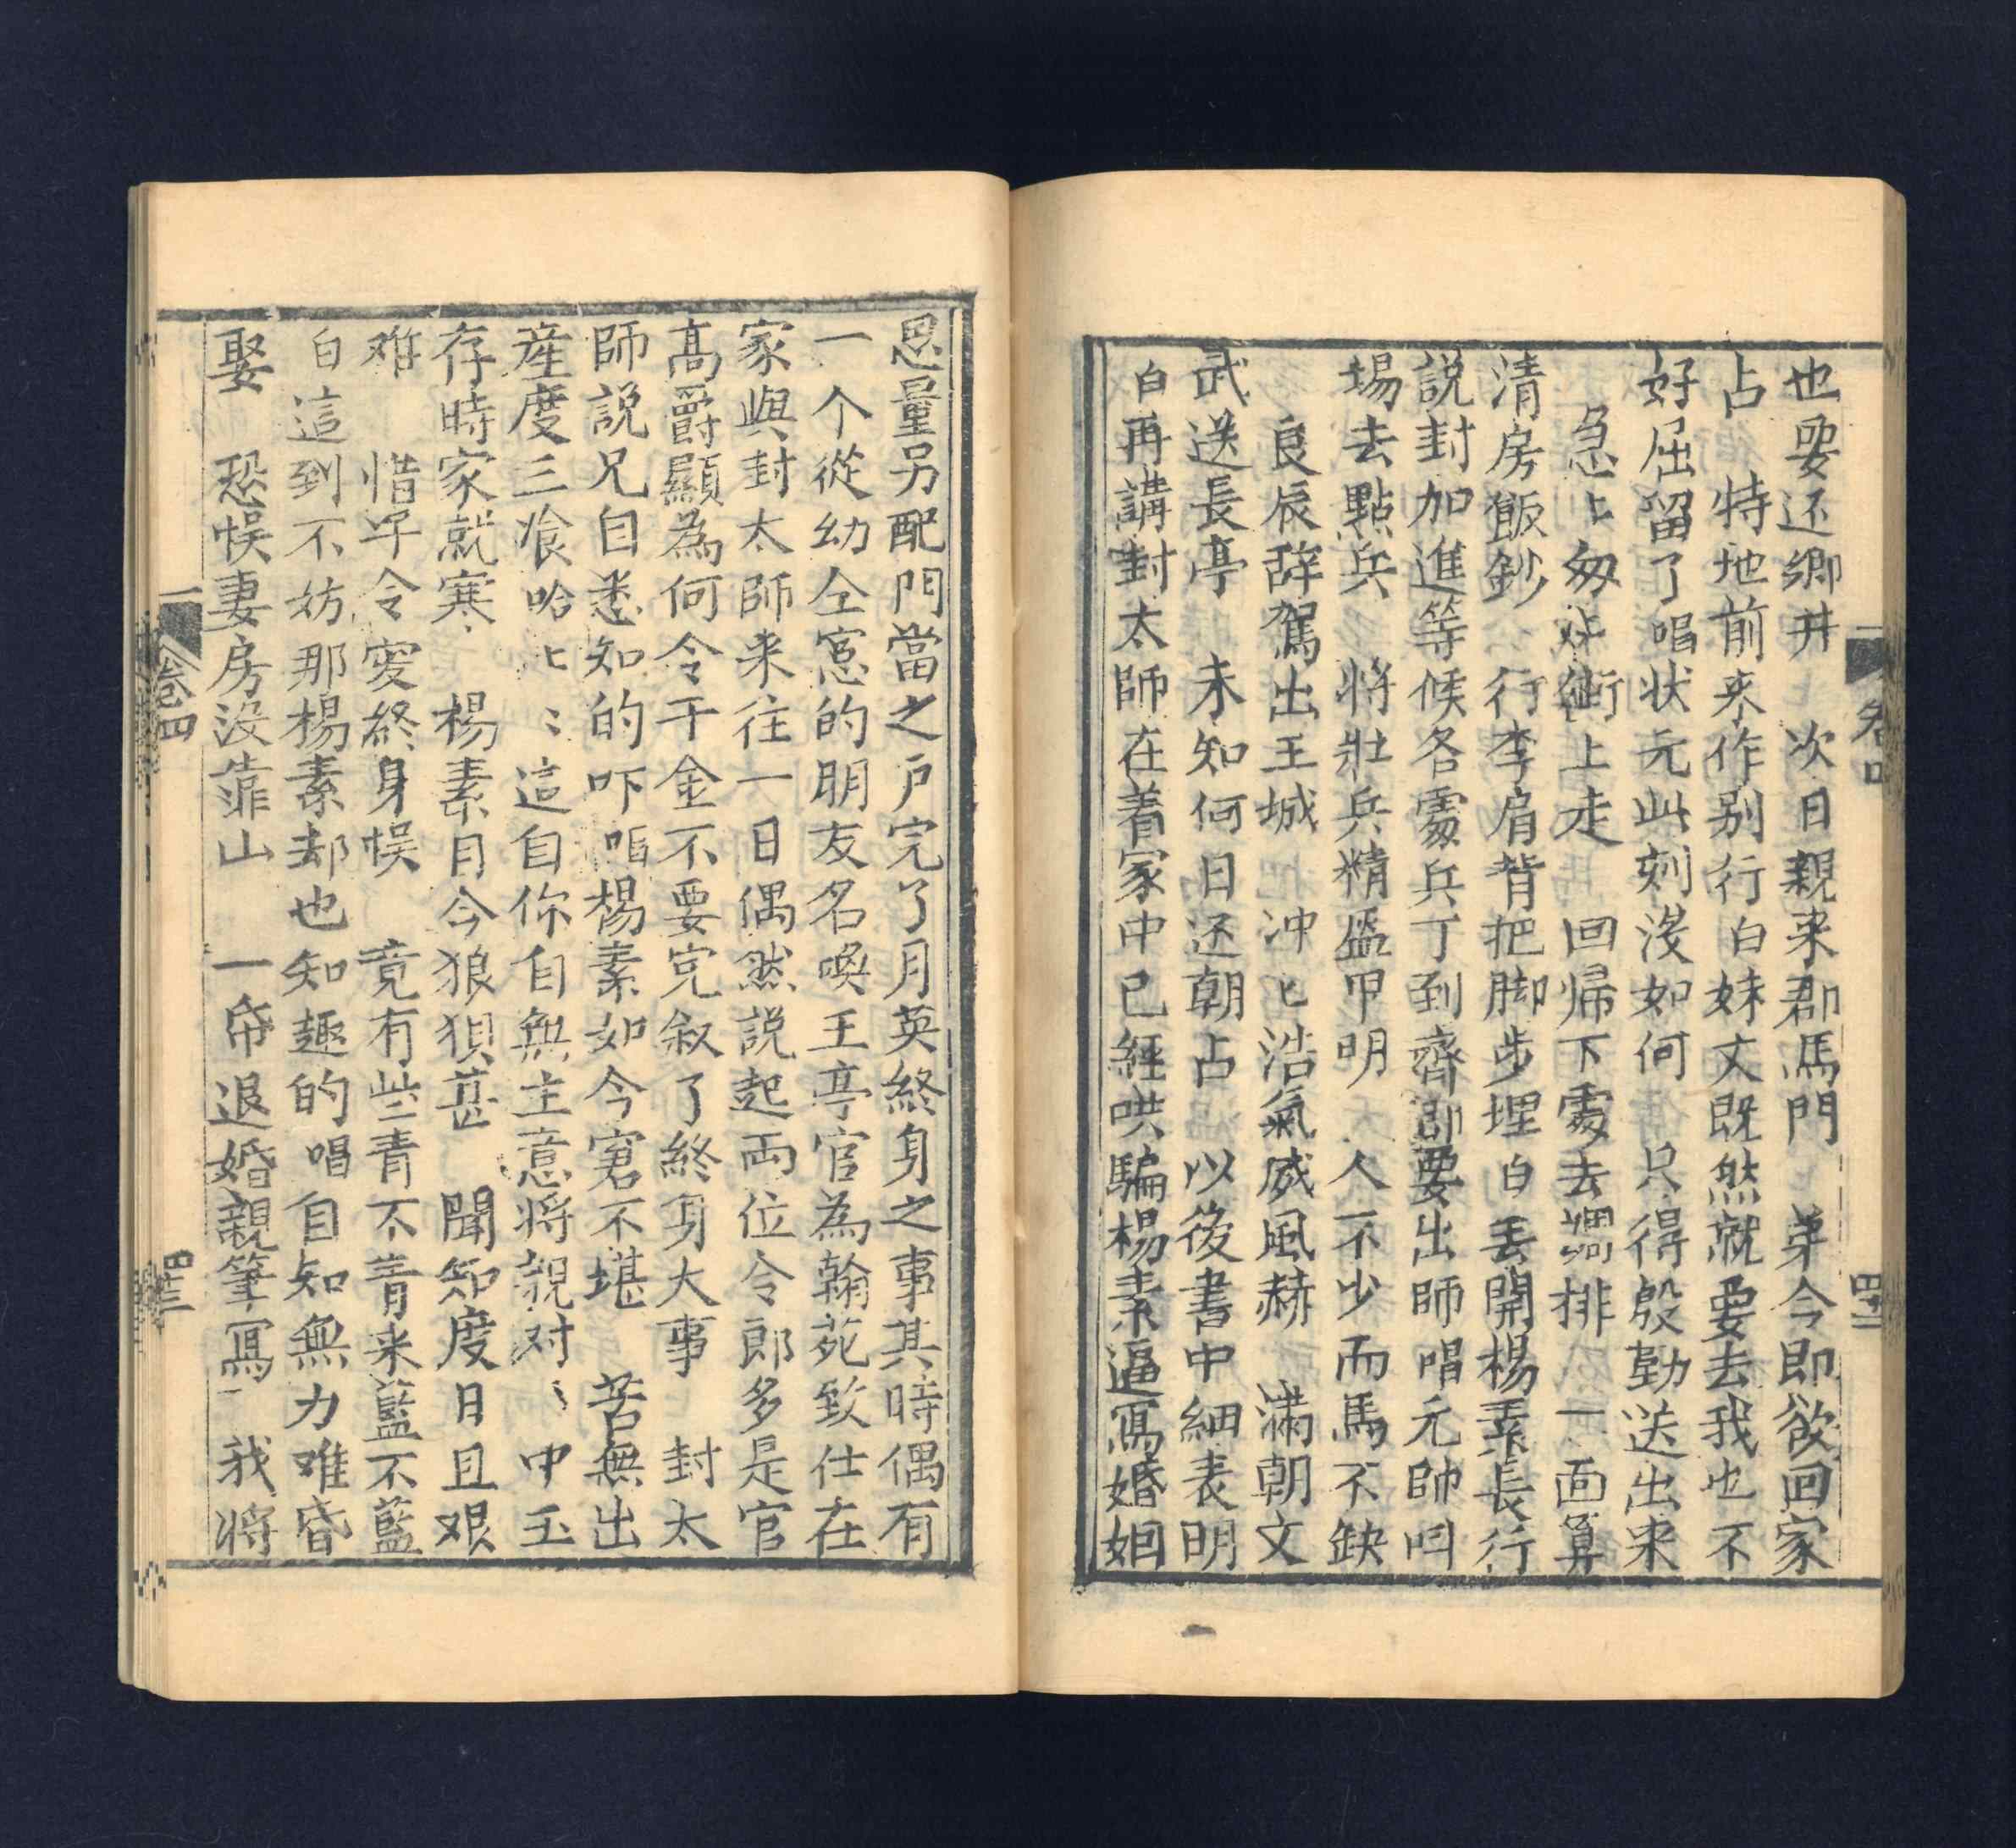 也要还鄉井　次日親来郡馬門　弟今即欲回家
占　特地前来作别行白妹丈既然就要去我也不
好屈留了唱状元此刻没如何　只得殷勤送出来
急匕匆匕街上走　回帰下處去調排　一面算
清房飯鈔　行李肩背把脚步埋白丢開楊素長行
説封加進等候各處兵丁到齊即要出師唱元帥叫
場去點兵　将壯兵精盔甲明　人不少而馬不缺
良辰辞駕出王城　冲匕浩氣威風赫　滿朝文
武送長亭　未知何日还朝占　以後書中細表明
白再講封太師在着家中已經哄騙楊素逼寫婚姻
卷四
四十二
思量另配門當之戸完了月英終身之事其時偶有
一个從幼仝窓的朋友名喚王亭官為翰苑致仕在
家與封太師来往一日偶然説起両位令郎多是官
髙爵顯為何令千金不要完叙了終身大事　封太
師説兄自悉知的吓唱楊素如今窘不堪　苦無出
産度三飡哈匕〻這自你自無主意将親对〻中玉
存時家就寒　楊素目今狼狽甚　聞知度日且艰
难　惜乎令愛終身悮　竟有些青不青来藍不藍
白這到不妨那楊素却也知趣的唱自知無力难昏
娶　恐悮妻房没靠山　一帋退婚親筆寫　我将
卷四
四十三